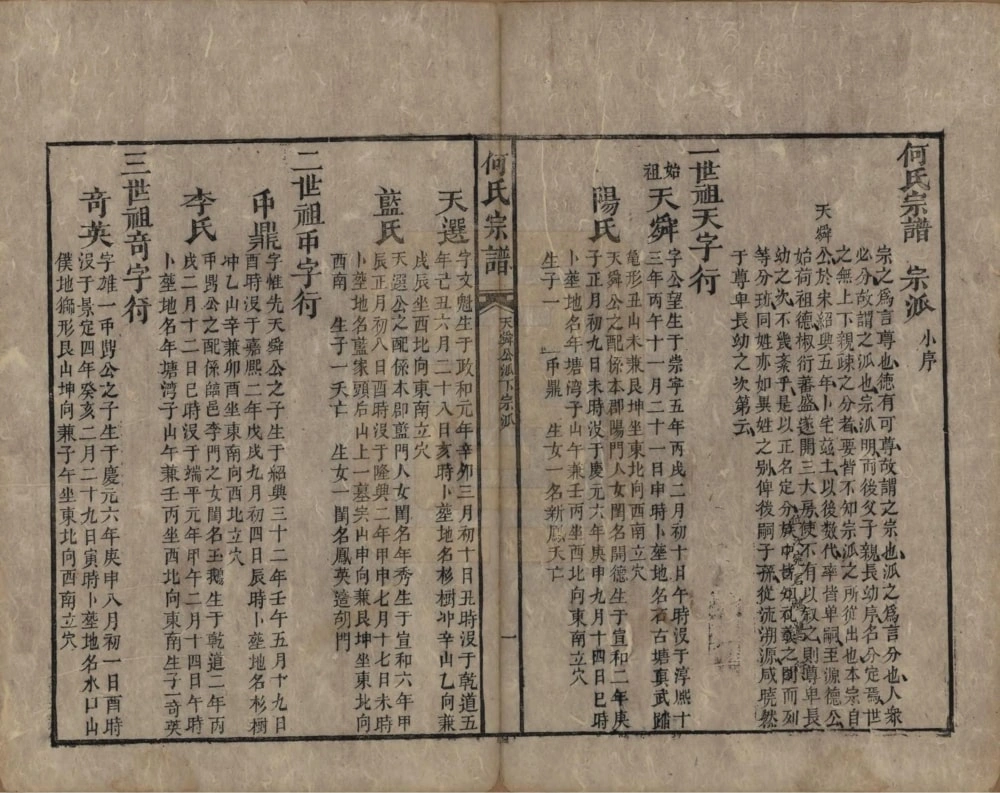 何氏宗譜 宗派 小序
宗之為言尊也德有可尊故謂之宗也派之為言分也人衆
必分故謂之派也宗派明而後父子親長幼序名分定焉世
之無上下親疎之分者要皆不知宗派之所從出也本宗自
天舜公於宋紹興五年卜宅茲土以後數代率皆单嗣至源德公
始荷祖德椒衍蕃盛遂開三大房使不有以叙之則尊卑長
幼之次不幾紊乎是以正名定分族中皆知礼義之閑而列
等分疏同姓亦如異姓之別俾後嗣子孫從流溯源咸曉然
于尊卑長幼之次第云
一世祖天字行
始祖 天舜 字公望生于崇寧五年丙戌二月初十日午時沒于淳熙十
三年丙午十一月二十一日申時卜塟地名石古塘真武䠶
龜形丑山未兼艮坤坐東北向西南立穴
陽氏 天舜公之配係本郡陽門人女閨名開德生于宣和二年庚
子正月初九日未時沒于慶元六年庚申九月十四日巳時
卜塟地名年塘湾子山午兼壬丙坐西北向東南立穴
生子一 帀鼎 生女一名新鳳夭亡
何氏宗譜 天舜公派下宗派 一
天選 字文魁生于政和元年辛卯三月初十日丑時沒于乾道五
年亡丑六月二十八日亥時卜塟地名杉樹冲辛山乙向兼
戌辰坐西北向東南立穴
藍氏 天選公之配係本郡藍門人女閨名年秀生于宣和六年甲
辰正月初八日酉時沒于隆興二年甲申七月十七日未時
卜塟地名藍家頭后山上一墓寅山申向兼艮坤坐東北向
西南 生子一夭亡 生女一閨名鳳英造胡門
二世祖帀字行
帀鼎 字惟先天舜公之子生于紹興三十二年壬午五月十九日
酉時沒于嘉熙二年戊戌九月初四日辰時卜塟地名杉樹
冲乙山辛兼卯酉坐東南向西北立穴
李氏 帀鼎公之配係臨邑李門之女閨名玉鵝生于乾道二年丙
戌二月十二日巳時沒于端平元年甲午二月十四日午時
卜塟地名年塘湾子山午兼壬丙坐西北向東南生子一奇英
三世祖奇字行
奇英 字雄一帀鼎公之子生于慶元六年庚申八月初一日酉時
沒于景定四年癸亥二月二十九日寅時卜塟地名水口山
僕地獅形艮山坤向兼子午坐東北向西南立穴